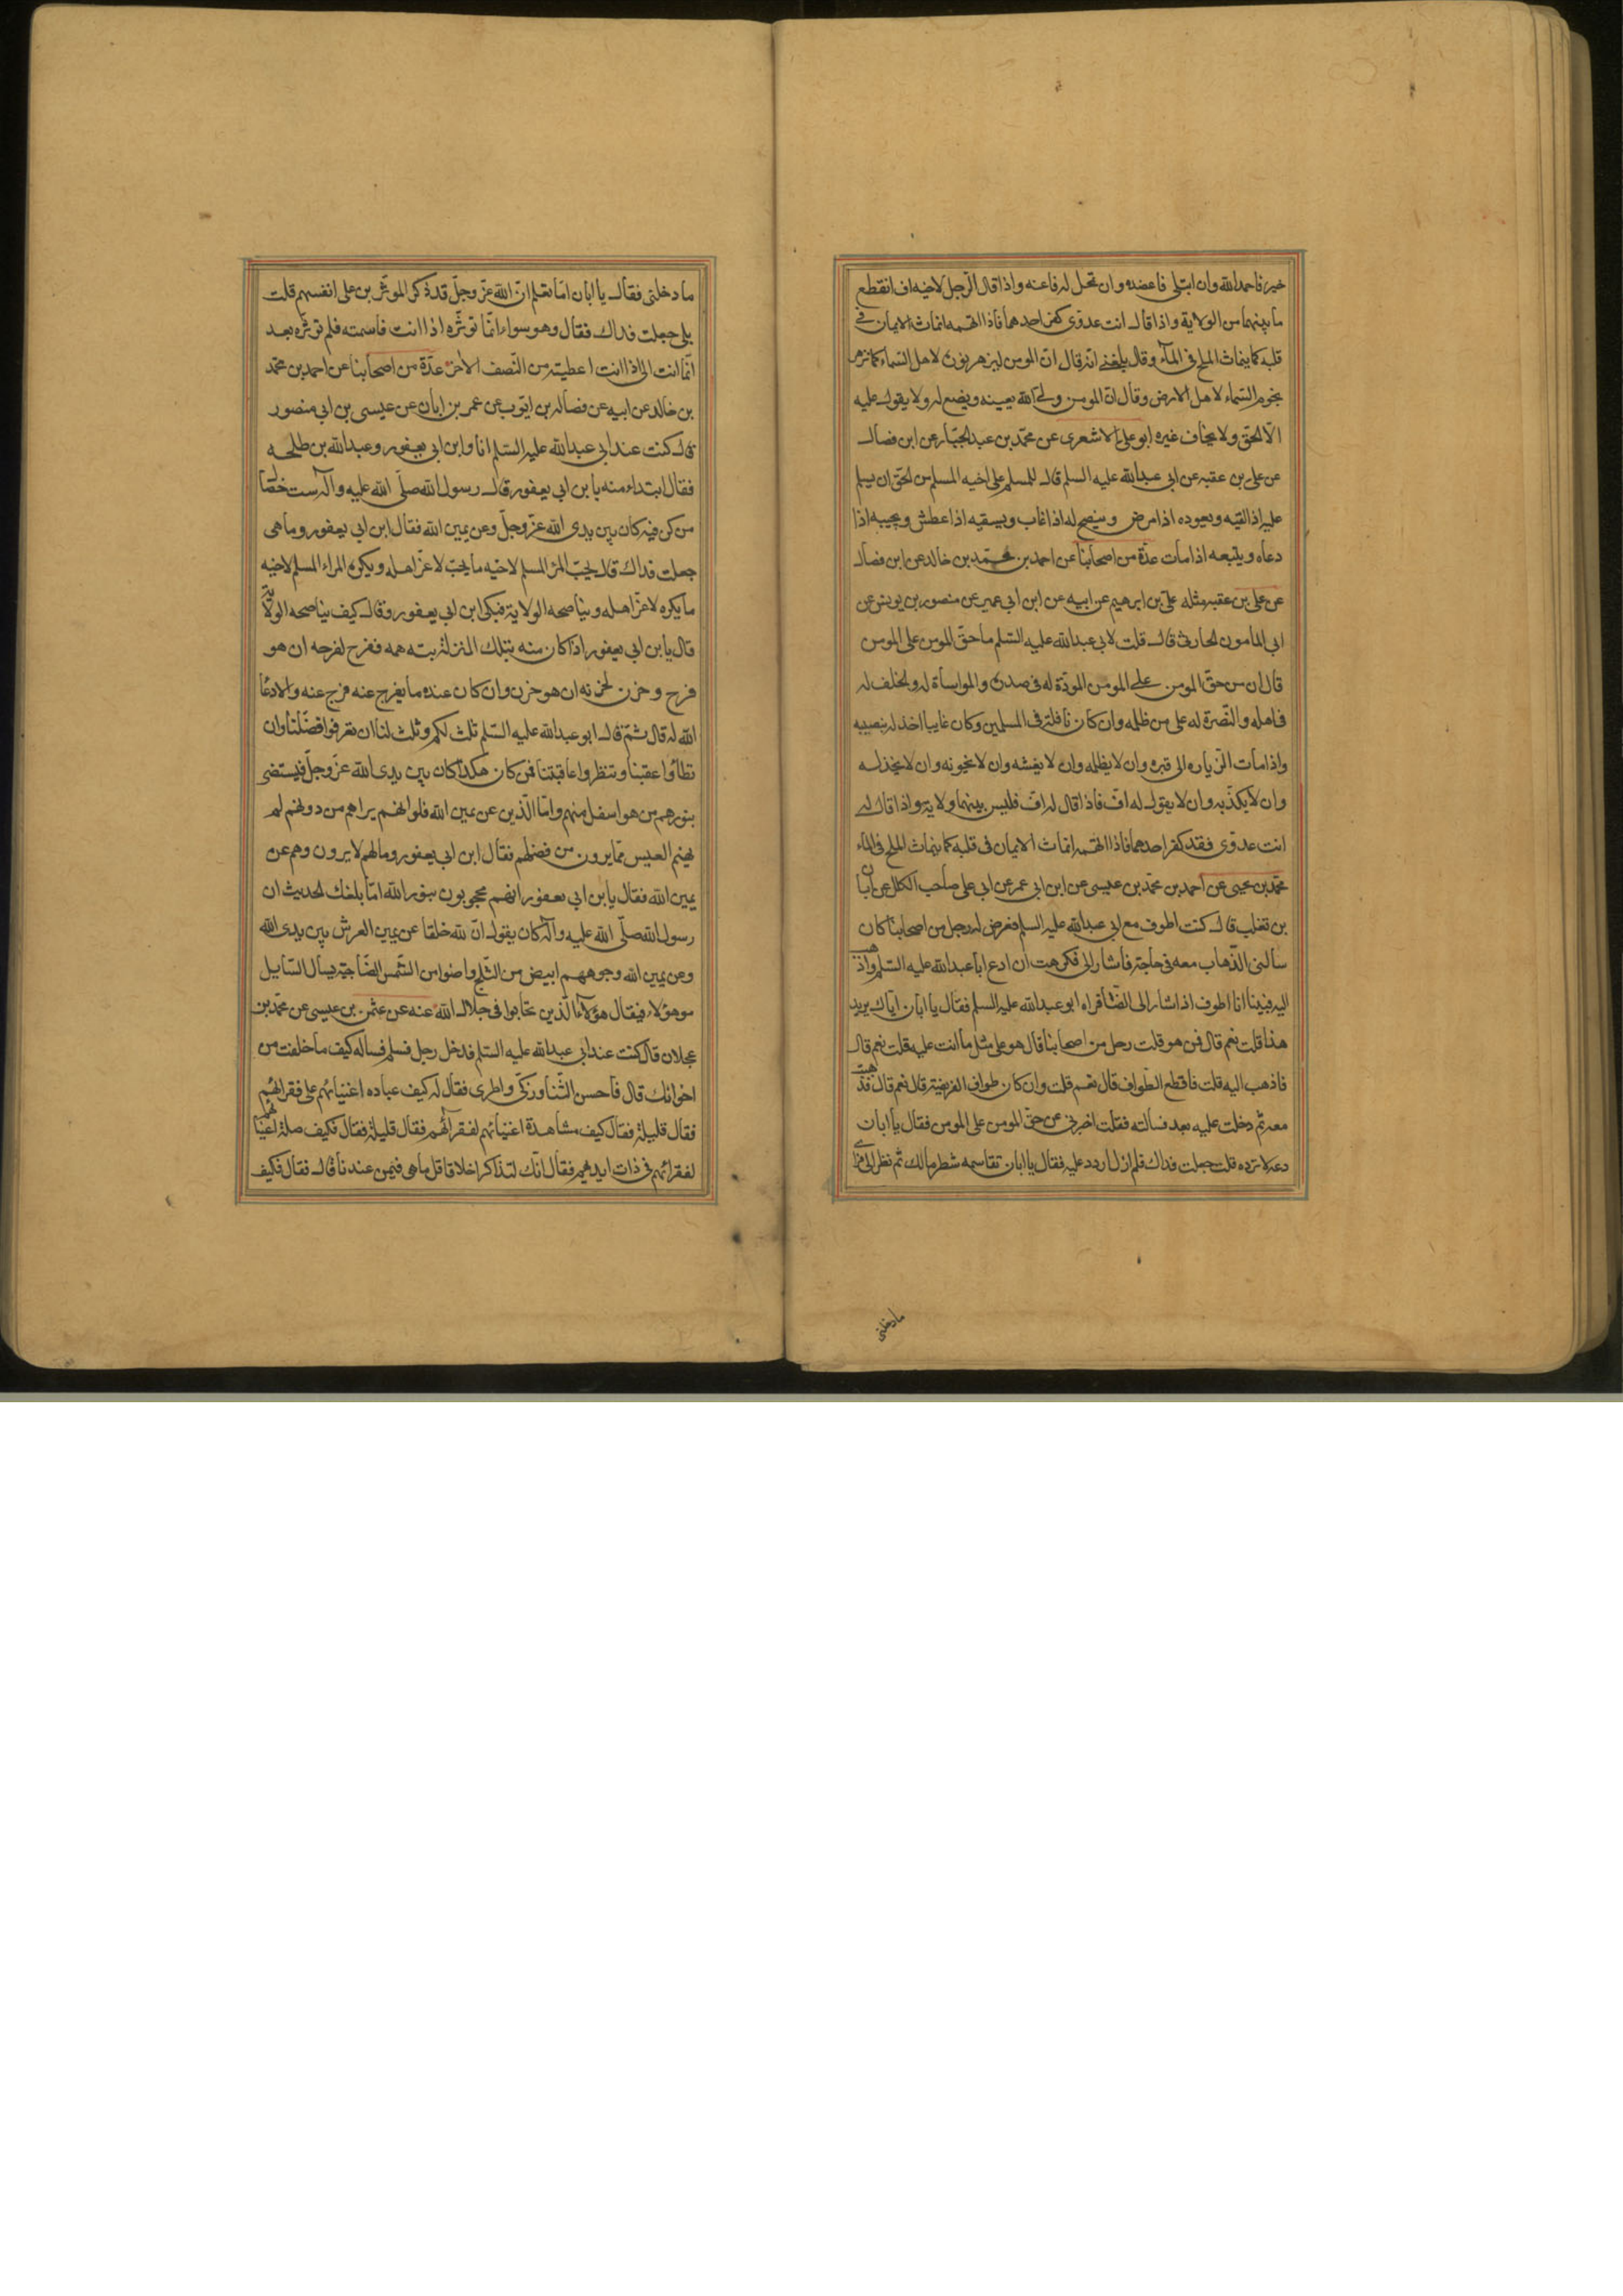 خير فاحمد الله وان ابتلى فاعضده وان تحمل له فاعنه واذا قال الرّجل لاخيه اف انقطع
ما بينهما من الولاية واذا قال انت عدوّى كفر احدهما فاذا اتهمه انماث الايمان فى
قلبه كما ينماث الملح فى المآء وقال بلغنى انه قال انّ المومن ليزهر نوره لاهل السّماء كما تزهر
نجوم السّماء لاهل الارض وقال انّ المومن ولىّ الله يعينه ويصنع له ولا يقول عليه
الّا الحقّ ولا يخاف غيره ابو على الاشعرى عن محمّد بن عبد الجبّار عن ابن فضال
عن على بن عقبه عن ابى عبدالله عليه السلم قال للمسلم على اخيه المسلم من الحق ان يسلم
عليه اذا لقيه ويعوده اذا مرض وينصح له اذا غاب ويسقيه اذا عطش ويجيبه اذا
دعاه ويتبعه اذا مات عدّة من اصحابنا عن احمد بن محمّد بن خالد عن ابن فضال
عن على بن عقبه مثله على بن ابرهيم عن ابيه عن ابن ابى عمير عن منصور بن يونس عن
ابى المأمون الحارثى قال قلت لابى عبدالله عليه السّلم ما حقّ المومن على المومن
قال ان من حقّ المومن على المومن المودّة له فى صدره والمواساة له ولخلف له
فى اهله والنّصرة له على من ظلمه وان كان نافلة فى المسلمين وكان غايبا اخذ له بنصيبه
واذا مات الزّياره الى قبره وان لا يظلمه وان لا يغشه وان لا يخونه وان لا يخذله
وان لا يكذّبه وان لا يقول له افّ فاذا قال له افّ فليس بينهما ولاية واذا قال له
انت عدوّى فقد كفر احدهما فاذا اتهمه انماث الايمان فى قلبه كما ينماث الملح فى المآء
محمّد بن يحيى عن احمد بن محمّد بن عيسى عن ابن ابى عمر عن ابى على صاحب الكلل عن ابان
بن تغلب قال كنت اطوف مع ابى عبدالله عليه السلم فعرض له رجل من اصحابنا كان
سالنى الذّهاب معه فى حاجة فاشار الى فكرهت ان ادع ابا عبدالله عليه السّلم واذهب
اليه فبينا انا اطوف اذ اشار الى ايضا فراه ابو عبدالله عليه السلم فقال يا ابان ايّاك يريد
هذا قلت نعم قال فمن هو قلت رجل من اصحابنا قال هو على مثل ما انت عليه قلت نعم قال
فاذهب اليه قلت فاقطع الطّواف قال نعم قلت وان كان طواف الفريضة قال نعم قال فذهبت
معه ثم دخلت عليه بعد فسالته فقلت اخبرنى عن حقّ المومن على المومن فقال يا ابان
دعه لا ترده قلت جعلت فداك فلم ازل اردد عليه فقال يا ابان تقاسمه شطر مالك ثم نظر الى فراى
ما دخلنى
ما دخلنى فقال يا ابان اما تعلم انّ الله عزّ وجلّ قد ذكر الموثرين على انفسهم قلت
بلى جعلت فداك فقال وهو سواء انّما توثره اذا انت قاسمته فلم توثره بعد
انّما انت الى اذا انت اعطيته من النّصف الاخر عدّة من اصحابنا عن احمد بن محمّد
بن خالد عن ابيه عن فضاله بن ايّوب عن عمر بن ابان عن عيسى بن ابى منصور
قال كنت عند ابى عبدالله عليه السّلم انا وابن ابى يعفور وعبدالله بن طلحه
فقال ابتداء منه يا بن ابى يعفور قال رسول الله صلّى الله عليه وآله ست خصال
من كن فيه كان بين يدى الله عزّ وجلّ وعن يمين الله فقال ابن ابى يعفور وما هى
جعلت فداك قال يحبّ المرء المسلم لاخيه ما يحبّ لاعزّ اهله ويكره المراء المسلم لاخيه
ما يكره لاعزّ اهله ويناصحه الولاية فبكى ابن ابى يعفور وقال كيف يناصحه الولاية
قال يا بن ابى يعفور اذا كان منه بتلك المنزلة بثه همه ففرح لفرحه ان هو
فرح وحزن لحزنه ان هو حزن وان كان عنده ما يفرج عنه فرج عنه والا دعا
الله له قال ثمّ قال ابو عبدالله عليه السّلم ثلث لكم وثلث لنا ان تعرفوا فضلنا وان
تطاؤا عقبنا وتنظروا عاقبتنا فمن كان هكذا كان بين يدى الله عزّ وجلّ فيستضى
بنورهم من هو اسفل منهم وامّا الّذين عن يمين الله فلو انّهم يراهم من دونهم لم
يهنهم العيس ممّا يرون من فضلهم فقال ابن ابى يعفور وما لهم لا يرون وهم عن
يمين الله فقال يا بن ابى يعفور انهم محجوبون بنور الله امّا بلغك الحديث ان
رسول الله صلّى الله عليه وآله كان يقول انّ لله خلقا عن يمين العرش بين يدى الله
وعن يمين الله وجوههم ابيض من الثّلج واضوا من الشّمس الضّاحية يسال السّايل
ما هؤلاء فيقال هؤلآء الّذين تحابوا فى جلال الله عنه عن عثمن بن عيسى عن محمّد بن
عجلان قال كنت عند ابى عبدالله عليه السّلم فدخل رجل فسلم فساله كيف ما خلفت من
اخوانك قال فاحسن الثّنا وزكّى واطرى فقال له كيف عياده اغنيائهم على فقرائهم
فقال قليلة فقال كيف مشاهدة اغنيائهم لفقرائهم فقال قليلة فقال فكيف صلة اغنيائهم
لفقرائهم فى ذات ايديهم فقال انّك لتذكر اخلاقا قل ما هى فيمن عندنا قال فقال فكيف